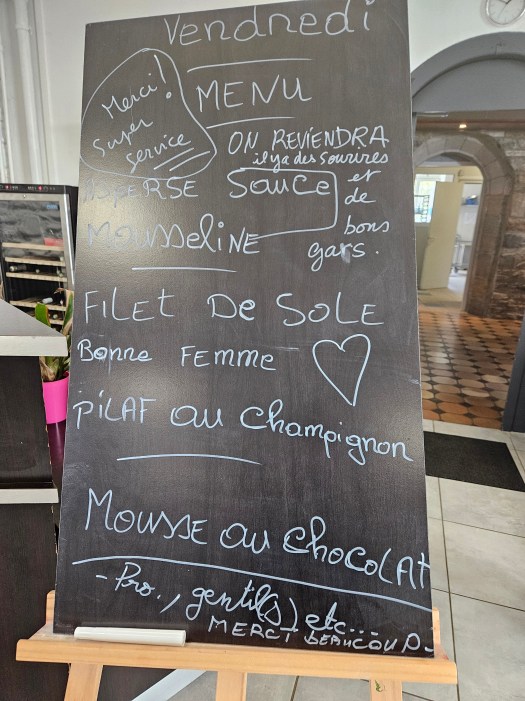 Vendredi
MENU
Merci!
Super
service
ON REVIENDRA
il y a des sourires
et
de
bons
gars.
ASPERSE SAUCE
MOUSSELINE
FILET DE SOLE
BONNE FEMME
PILAF au champignon
MOUSSE au CHOCOLAT
- Pro., gentil(s) etc...
MERCI BEAUCOUP.